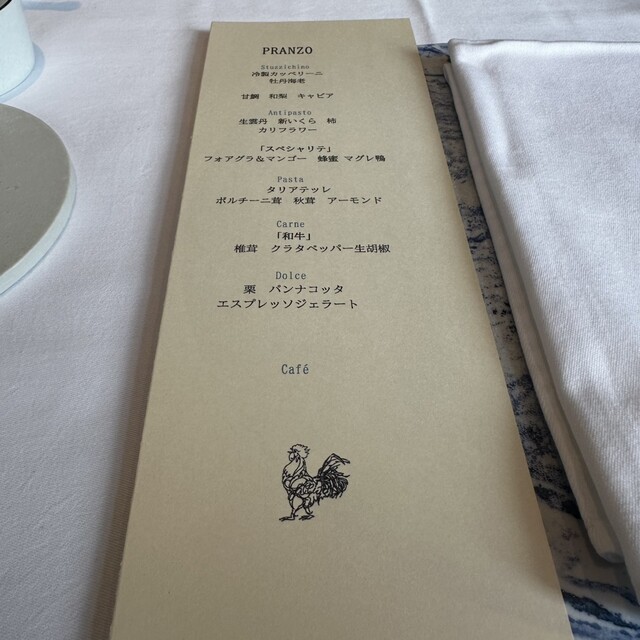 PRANZO
Stuzzichino
冷製カッペリーニ
牡丹海老
甘鯛 和梨 キャビア
Antipasto
生雲丹 新いくら 柿
カリフラワー
「スペシャリテ」
フォアグラ&マンゴー 蜂蜜 マグレ鴨
Pasta
タリアテッレ
ポルチーニ茸 秋茸 アーモンド
Carne
「和牛」
椎茸 クラタペッパー生胡椒
Dolce
栗 パンナコッタ
エスプレッソジェラート
Café